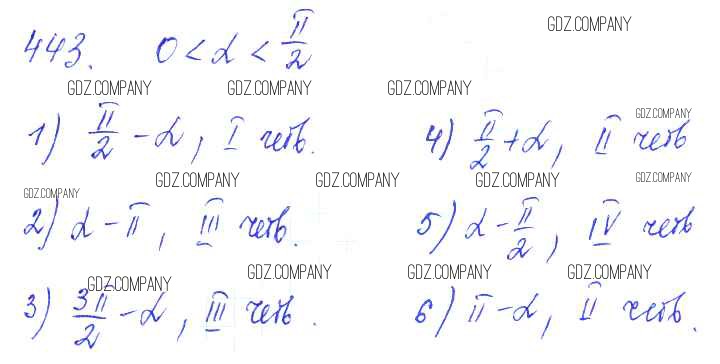 443. 0 < α < π/2
GDZ.COMPANY
GDZ.COMPANY GDZ.COMPANY GDZ.COMPANY
1) π/2 - α, I четв.
GDZ.COMPANY
4) π/2 + α, II четв
GDZ.COMPANY GDZ.COMPANY GDZ.COMPANY GDZ.COMPANY GDZ.COMPANY
2) α - π, III четв.
5) α - π/2, IV четв
GDZ.COMPANY GDZ.COMPANY GDZ.COMPANY GDZ.COMPANY
3) 3π/2 - α, III четв.
6) π - α, II четв.